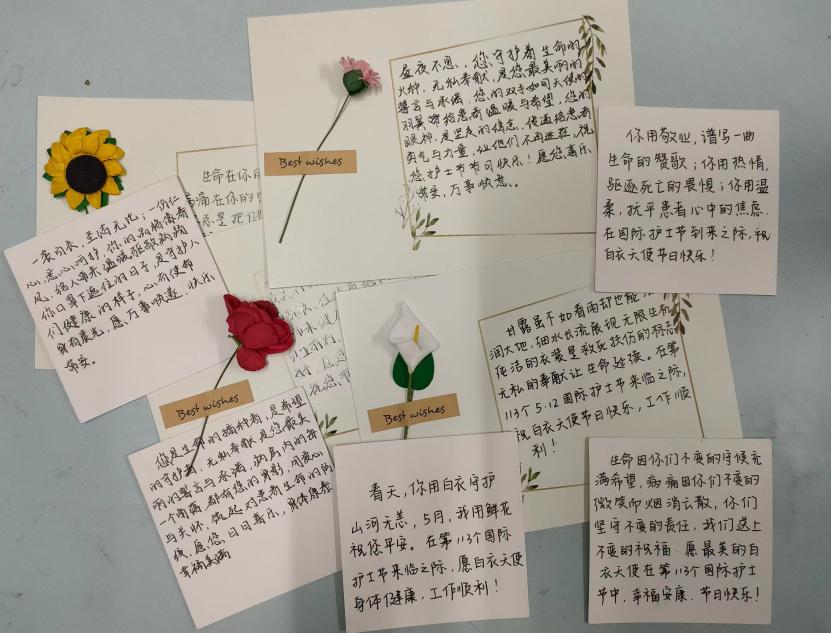 昼夜不息，您守护着生命的
火种，无私奉献，是您最美丽的
誓言与承诺，您的双手如同天使的
羽翼带给患者温暖与希望，您的
眼神，是坚定的信念，传递给患者
勇气与力量，让他们不再迷茫，祝
您护士节节日快乐！愿您喜乐
常安、万事快意。
Best wishes
你用敬业，谱写一曲
生命的赞歌；你用热情，
驱逐死亡的畏惧；你用温
柔，抚平患者心中的焦虑.
在国际护士节到来之际，祝
白衣天使节日快乐！
生命在你
病痛在你的
总是把
一袭白衣，至洁无比；一份仁
心，悉心呵护，你的
风，给人带来温暖驱散病痛
你口罩下遮住的日子，是守护人
们健康的样子，心有使命
身有晨光，愿万事快遂，快乐
常安。
Best wishes
甘露虽不如春雨却也能
润大地，细水长流展现无限生机
洁的衣装是救死扶伤的标志
无私的奉献让生命延续。在第
113个5.12国际护士节来临之际，
祝白衣天使节日快乐，工作顺
利！
Best wishes
您是生命的播种者，是希望
的守护者，无私奉献是您最美
丽的誓言与承诺，病房内的每
一个角落，都有您的身影，用爱心
与关怀，
线，愿您日日喜乐，身体康泰
幸福美满
春天，你用白衣守护
山河无恙，5月，我用鲜花
祝您平安。在第113个国际
护士节来临之际，愿白衣天使
身体健康，工作顺利！
生命因你们不变的守候充
满希望，病痛因你们不变的
微笑而烟消云散，你们
坚守不变的责任，我们送上
不变的祝福。愿最美的白
衣天使在第113个国际护士
节中，幸福安康，节日快乐！